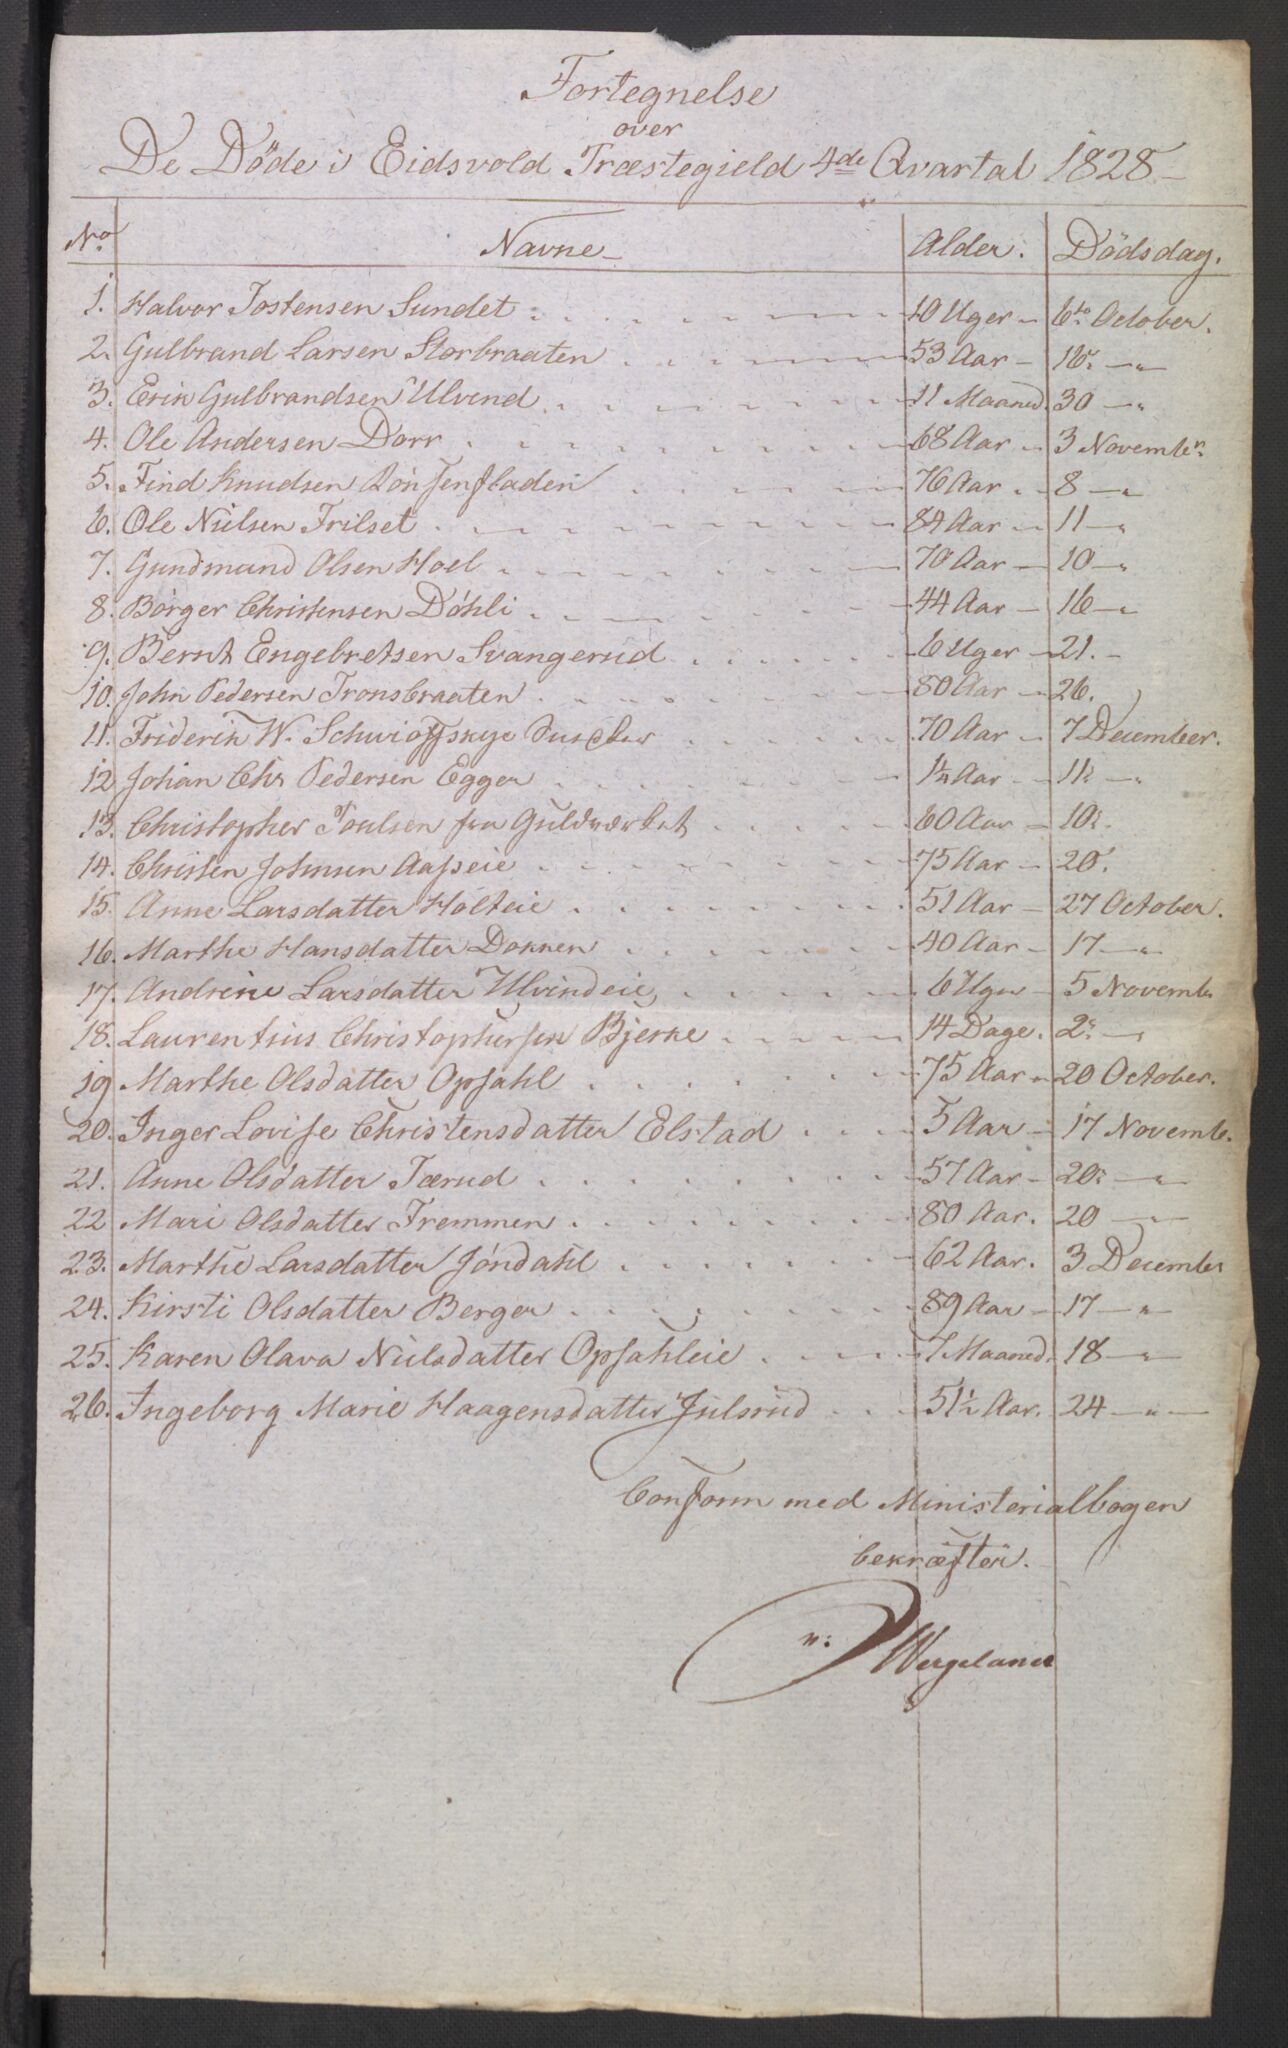 Fortegnelse
over
De Döde i Eidsvold Præstegield 4de Qvartal 1828
No Navne Alder. Dödsdag.
1. Halvor Tostensen Sundet 10 Uger 6te October.
2. Gulbrand Larsen Storbraaten 53 Aar 16 — "
3. Erik Gulbrandsen Ulvend 11 Maaned 30 — "
4. Ole Andersen Dorr 68 Aar 3 Novembr.
5. Find Knudsen 76 Aar 8 — "
6. Ole Nielsen Frilset 84 Aar 11 — "
7. Gundmund Olsen Hoel 70 Aar 10 — "
8. Börger Christensen Döhli 44 Aar 16 — "
9. Bernt Engebretsen Svangerud 6 Uger 21. —
10. John Pedersen Tronsbraaten 80 Aar 26.
11. Friderik W. 70 Aar 7 December.
12 Johan Chr Pedersen Egger 1¼ Aar 11 — "
13. Christopher Poulsen fra Guldværket 60 Aar 10.
14. Christen Johnsen Aaseie 75 Aar 20.
15. Anne Larsdatter Holteie 51 Aar 27 October.
16. Marthe Hansdatter Dokken 40 Aar 17 — "
17. Andrine Larsdatter Ulvindeie 6 Uger 5 Novemb
18. Laurentius Christophersen Bjerke 14 Dage. 2 — "
19 Marthe Olsdatter Opsahl 75 Aar 20 October.
20. Inger Lovise Christensdatter Elstad 5 Aar 17 Novemb.
21. Anne Olsdatter Tærud 57 Aar 20 — "
22 Mari Olsdatter Fremmen 80 Aar. 20 — "
23. Marthe Larsdatter Jöndahl 62 Aar. 3 December
24. Kirsti Olsdatter Berger 89 Aar 17 — "
25. Karen Olava Nielsdatter Opsahleie 7 Maaned. 18 — "
26. Ingeborg Marie Haagensdatter Julsrud 51½ Aar. 24 — " —
Conform med Ministerialbogen
bekræfter.
N: Wergeland